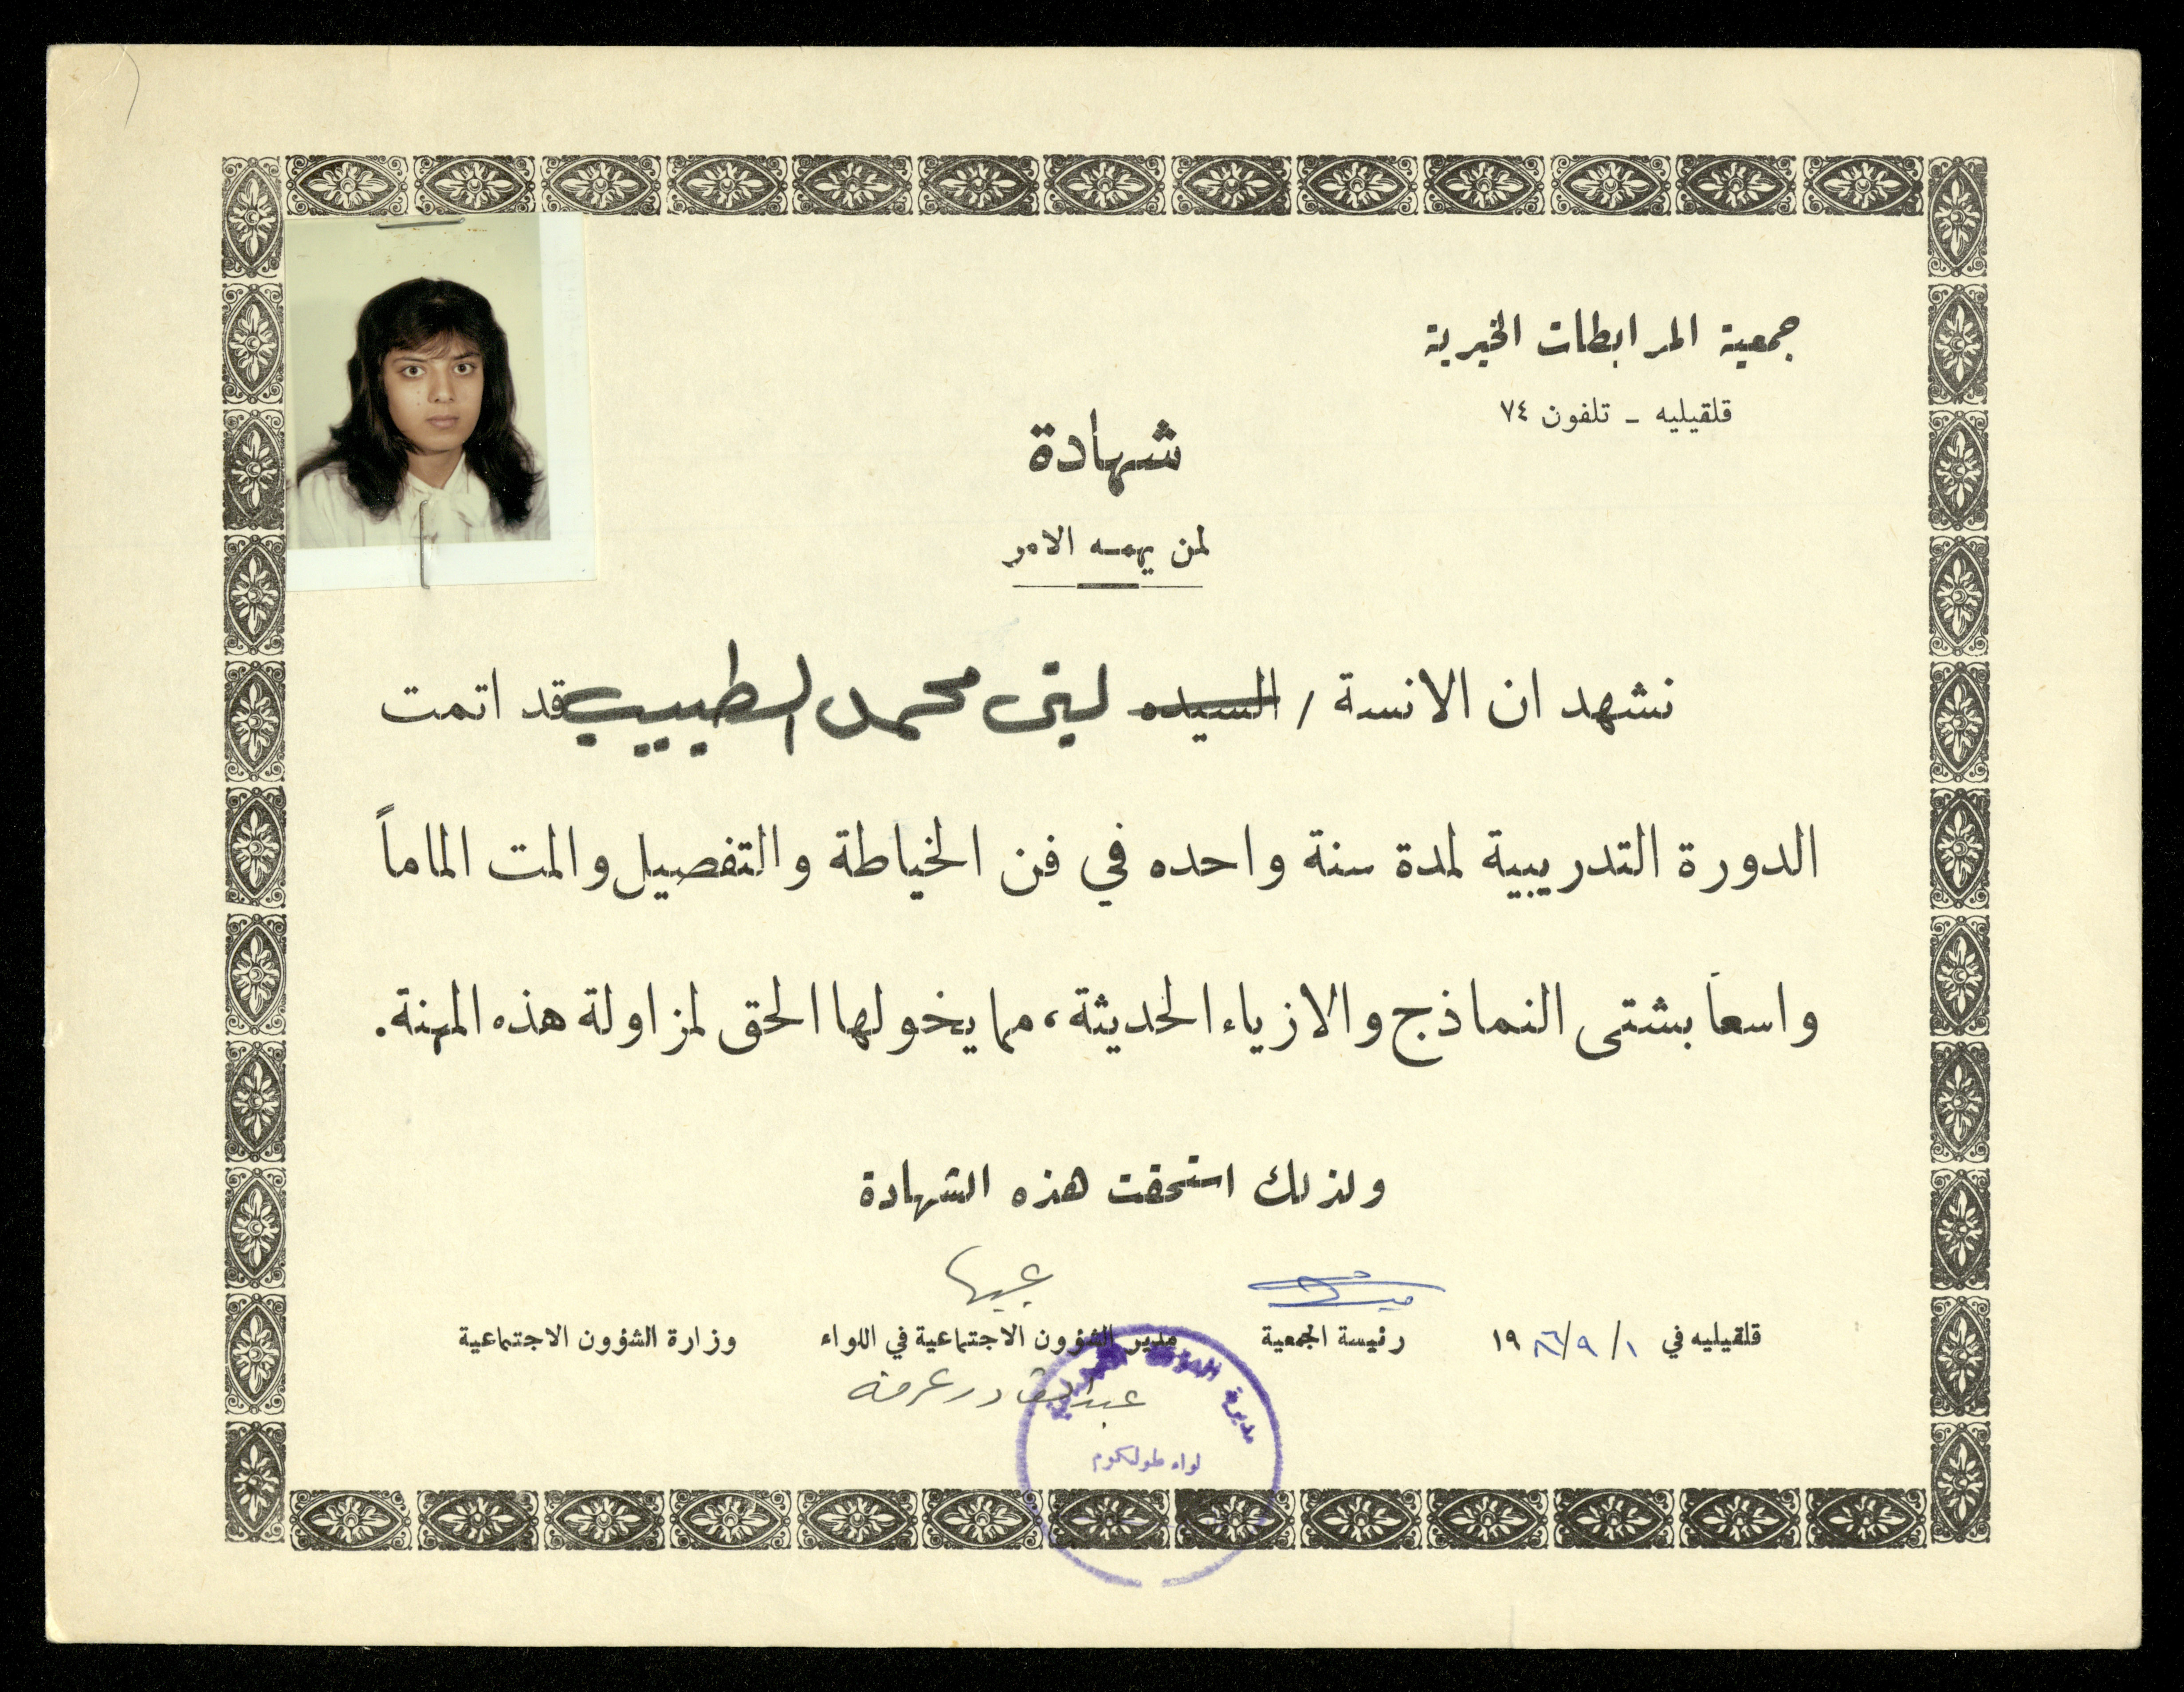 جمعية المرابطات الخيرية
قلقيليه - تلفون ٧٤
شهادة
لمن يهمه الامر
نشهد ان الانسة / السيده لبنى محمد الطبيب قد اتمت
الدورة التدريبية لمدة سنة واحده في فن الخياطة والتفصيل والمت الماماً
واسعاً بشتى النماذج والازياء الحديثة، مما يخولها الحق لمزاولة هذه المهنة.
ولذلك استحقت هذه الشهادة
قلقيليه في ١/٩/١٩٨٦ رئيسة الجمعية مدير الشؤون الاجتماعية في اللواء وزارة الشؤون الاجتماعية
عبدالقادر عرفه
مديرة الشؤون
لواء طولكرم